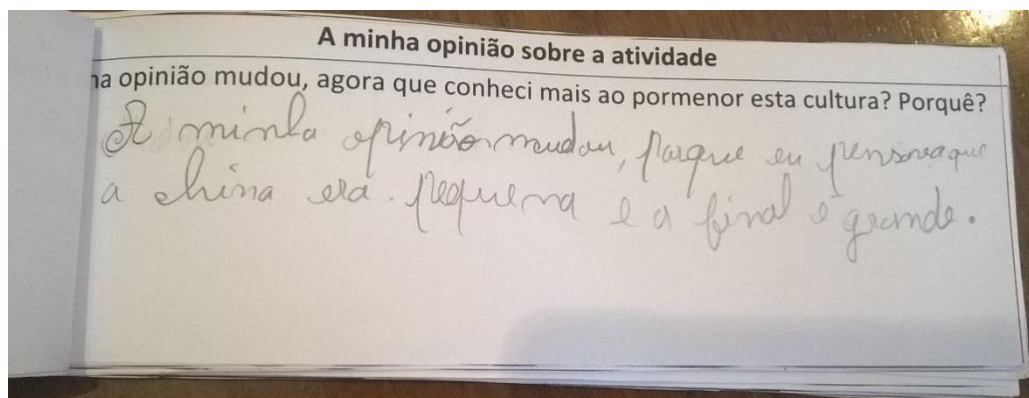 A minha opinião sobre a atividade
na opinião mudou, agora que conheci mais ao pormenor esta cultura? Porquê?
A minha opinião mudou, porque eu pensava que
a china era pequena e a final é grande.